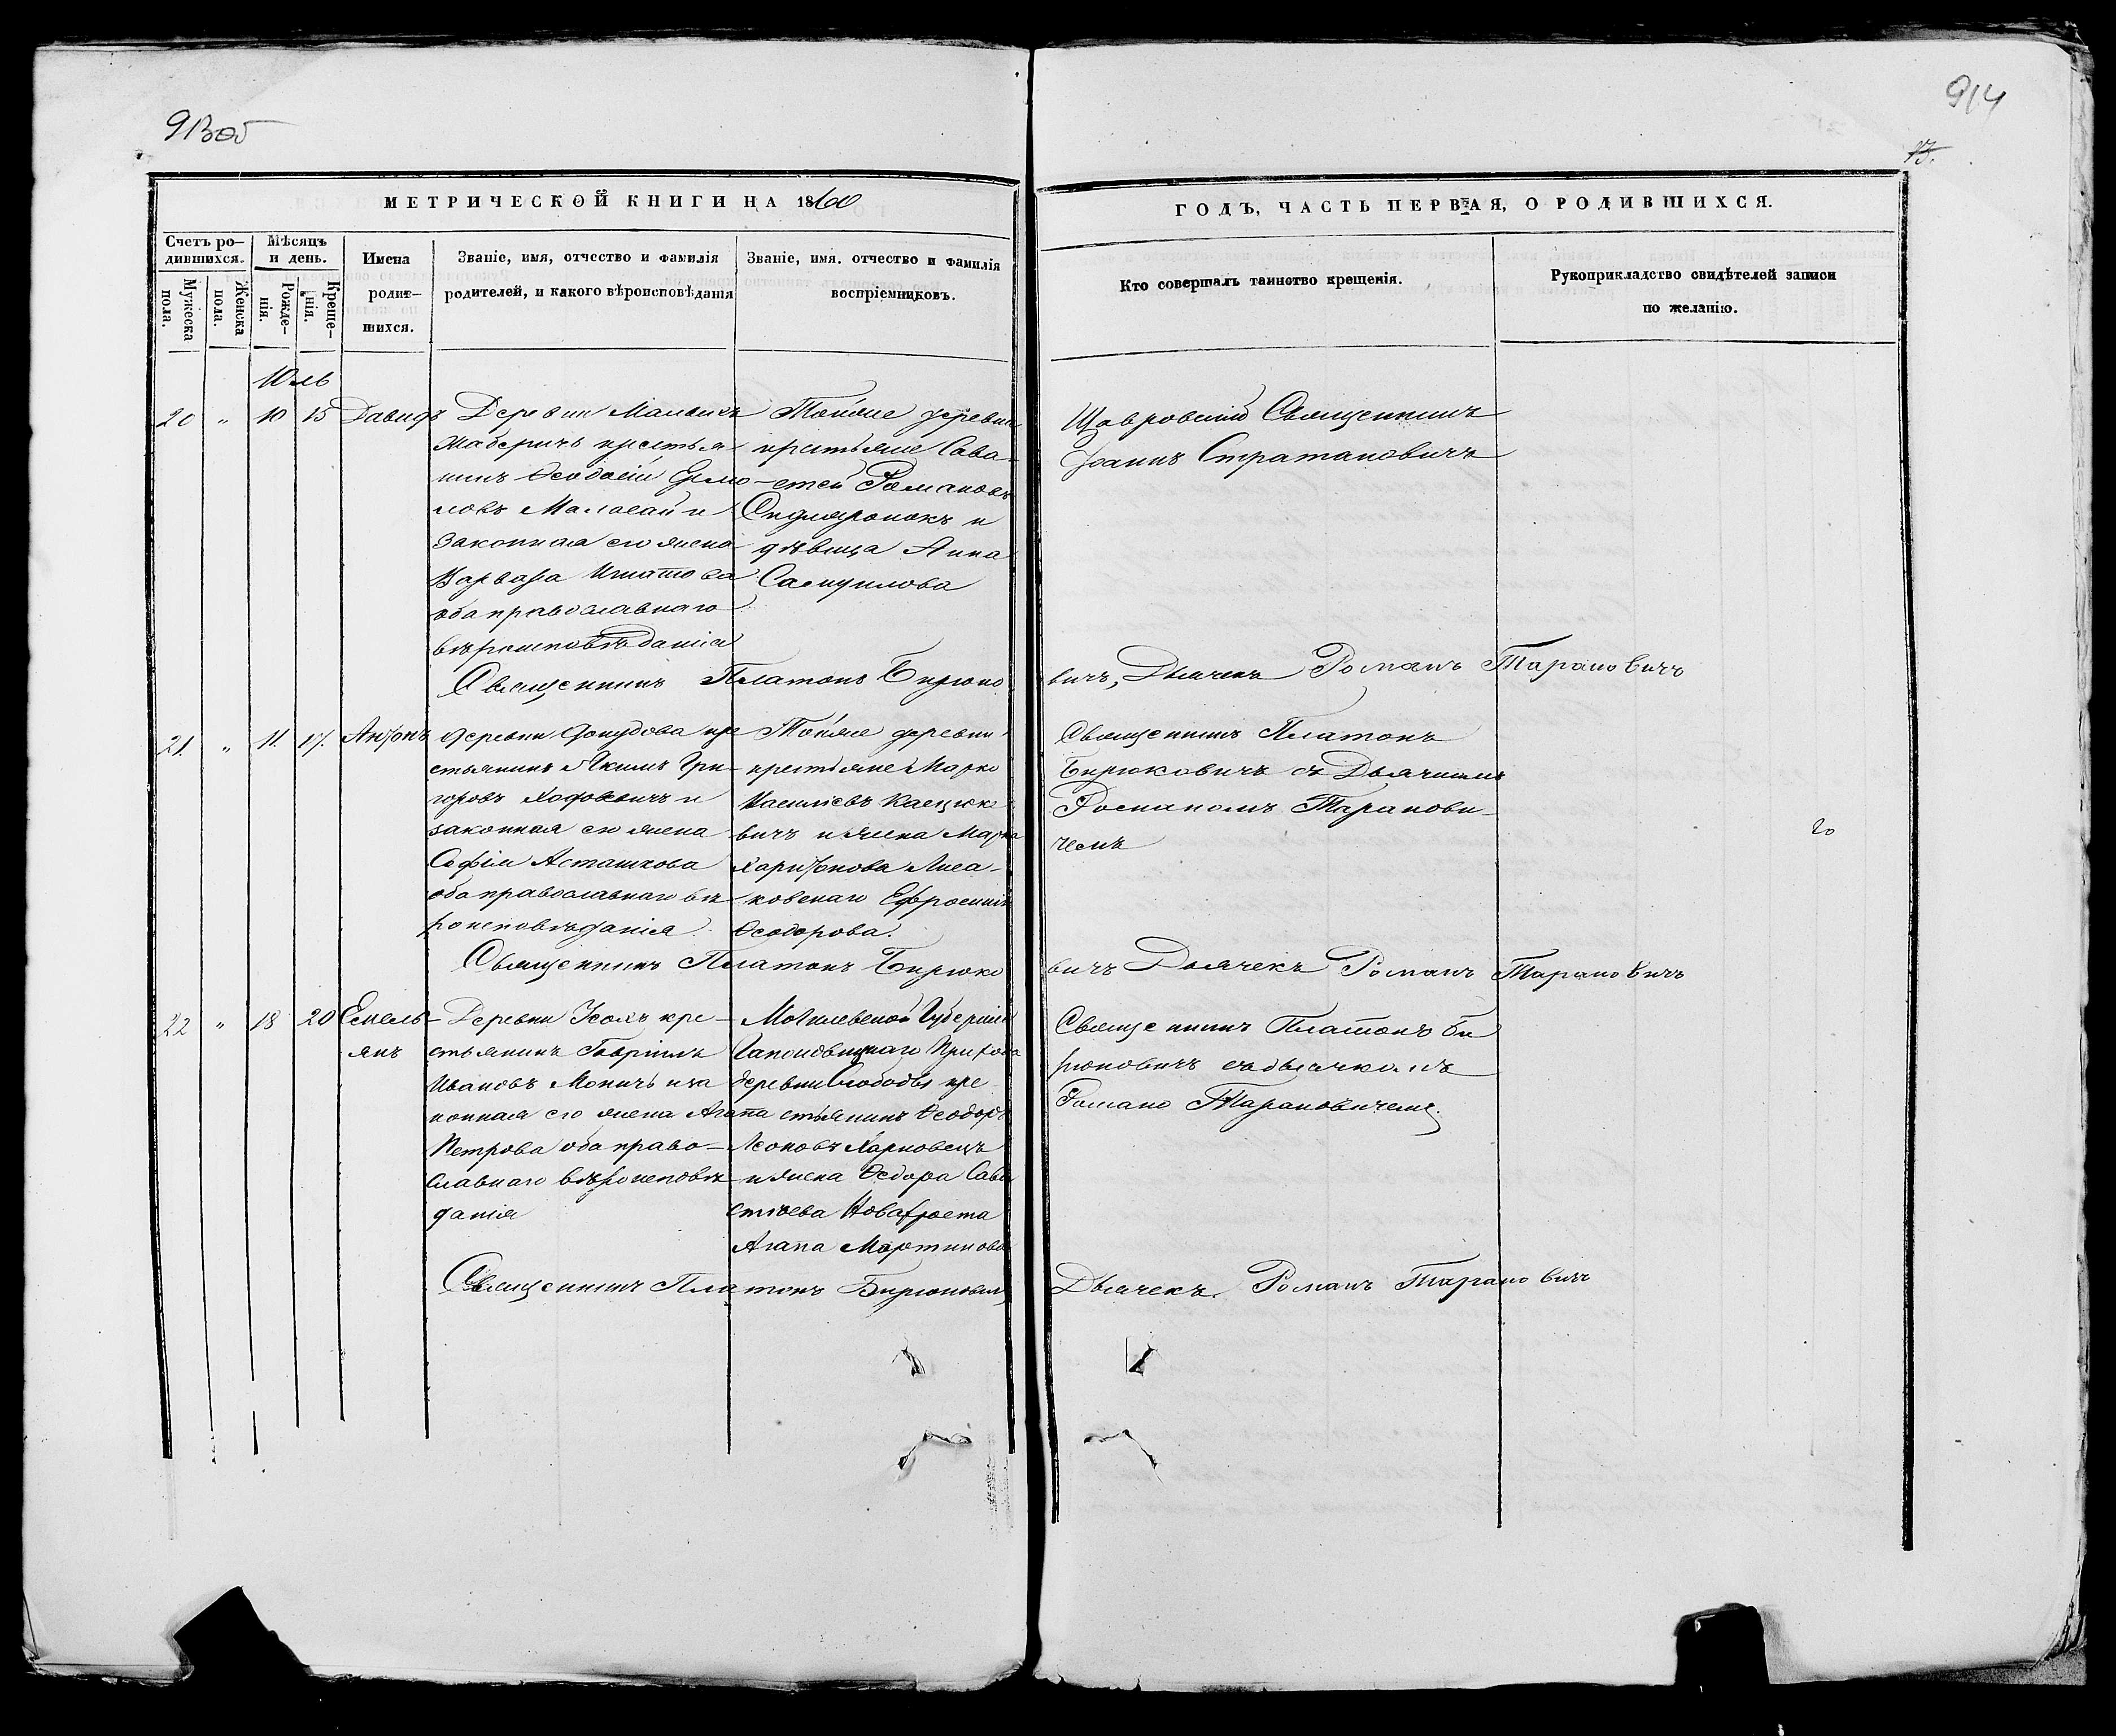 913об
914
13.
МЕТРИЧЕСКОЙ КНИГИ НА 1860
ГОДЪ, ЧАСТЬ ПЕРВАЯ, О РОДИВШИХСЯ.
Счетъ ро-
дившихся.
Мужеска
пола.
Женска
пола.
Мѣсяцъ
и день.
Рожде-
нія.
Креще-
нія.
Имена
родив-
шихся.
Званіе, имя, отчество и фамилія
родителей, и какого вѣроисповѣданія
Званіе, имя. отчество и фамилія
воспріемниковъ.
Кто совершалъ таинство крещенія.
Рукоприкладство свидѣтелей записи
по желанію.
Юль
20 " 10 15 Давидъ
Деревни
крестья-
нинъ Ѳеодосій
и
законная его жена
Варвара Игнатова
оба православнаго
вѣроисповѣданія
Тойже деревни
крестьяне Сава-
стей Романовъ
и
дѣвица Анна
Самуилова
Священникъ
Іоаннъ Стратановичъ
Священникъ Платонъ Бирюко
вичъ, Дьячекъ Романъ Тарановичъ
21. " 11. 17. Антонъ
деревни кре
стьянинъ Якимъ Гри-
горовъ и
законная его жена
Софія Асташкова
оба православнаго вѣ
роисповѣданія
Тойже деревни
крестьяне Марко
вичъ и жена Марка
Харитонова Лиса-
ковскаго Ефросинія
Ѳеодорова.
Священникъ Платонъ
Бирюковичъ съ Дьячкомъ
Романомъ Таранови-
чемъ
20
Священникъ Платонъ Бирюко
вичъ Дьячекъ Романъ Тарановичъ
22 " 18 20 Емель-
янъ
Деревни кре-
стьянинъ Гавріилъ
Ивановъ и за
конная его жена Агапа
Петрова оба право-
славнаго вѣроисповѣ
данія
Могилевской Губерніи
Прихода
деревни Слободы кре
стьянинъ Ѳеодоръ
Леоновъ Харковецъ
и жена Ѳедора Сава
стѣева
Агапа Мартинова
Священникъ Платонъ Би
рюковичъ съ дьячкомъ
Романо Тарановичемъ.
Священникъ Платонъ Бирюковичъ
Дьячекъ Романъ Тарановичъ